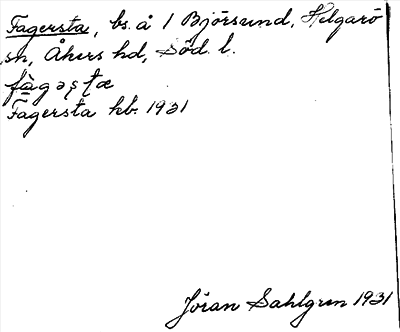 Fagersta, bs. å 1 Björsund, Helgarö
sn, Åkers hd, Söd. l.
fàgəʂʈæ
Fagersta kb. 1931
Jöran Sahlgren 1931